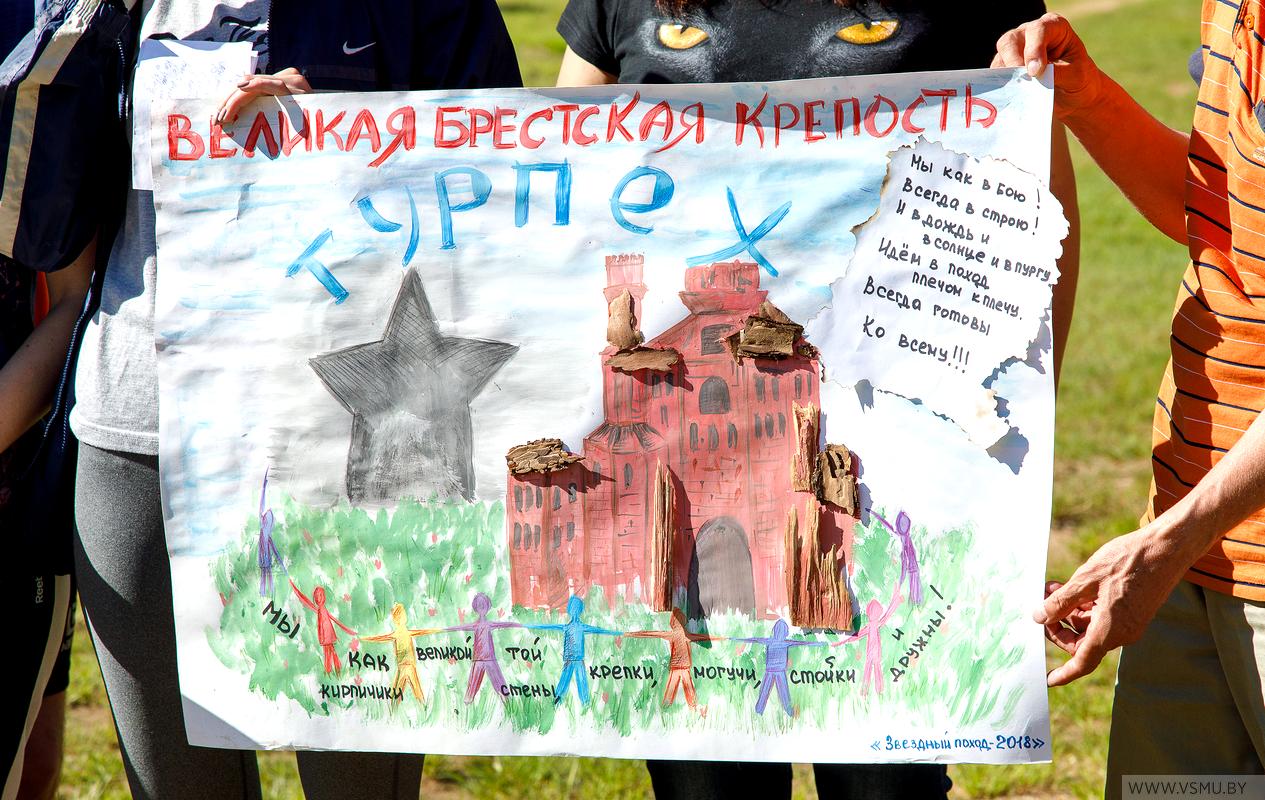 ВЕЛИКАЯ БРЕСТСКАЯ КРЕПОСТЬ
ТУРПЕХ
Мы как в бою!
Всегда в строю!
И в дождь и
в солнце и в пургу
Идём в поход
плечом к плечу.
Всегда готовы
Ко всему!!!
Мы
как
кирпичики
великой
той
стены
крепки,
могучи,
стойки
и
дружны!
«Звездный поход-2018»
Reebok
WWW.VSMU.BY